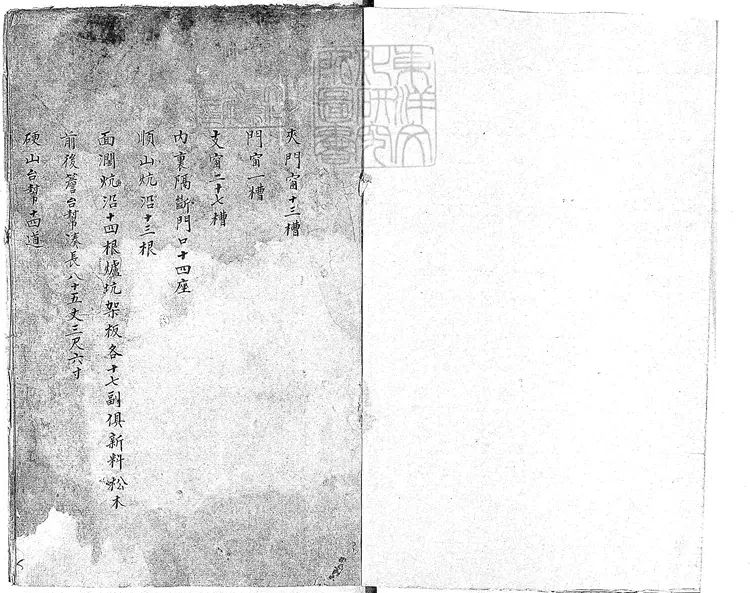 夾門窗十三槽
門窗一槽
支窗二十七槽
內裏隔斷門口十四座
順山炕沿十三根
面濶炕沿十四根爐坑架板各十七副俱新料松木
前後簷台幫湊長八十五丈三尺六寸
硬山台幫十四道
東洋文化研究所圖書